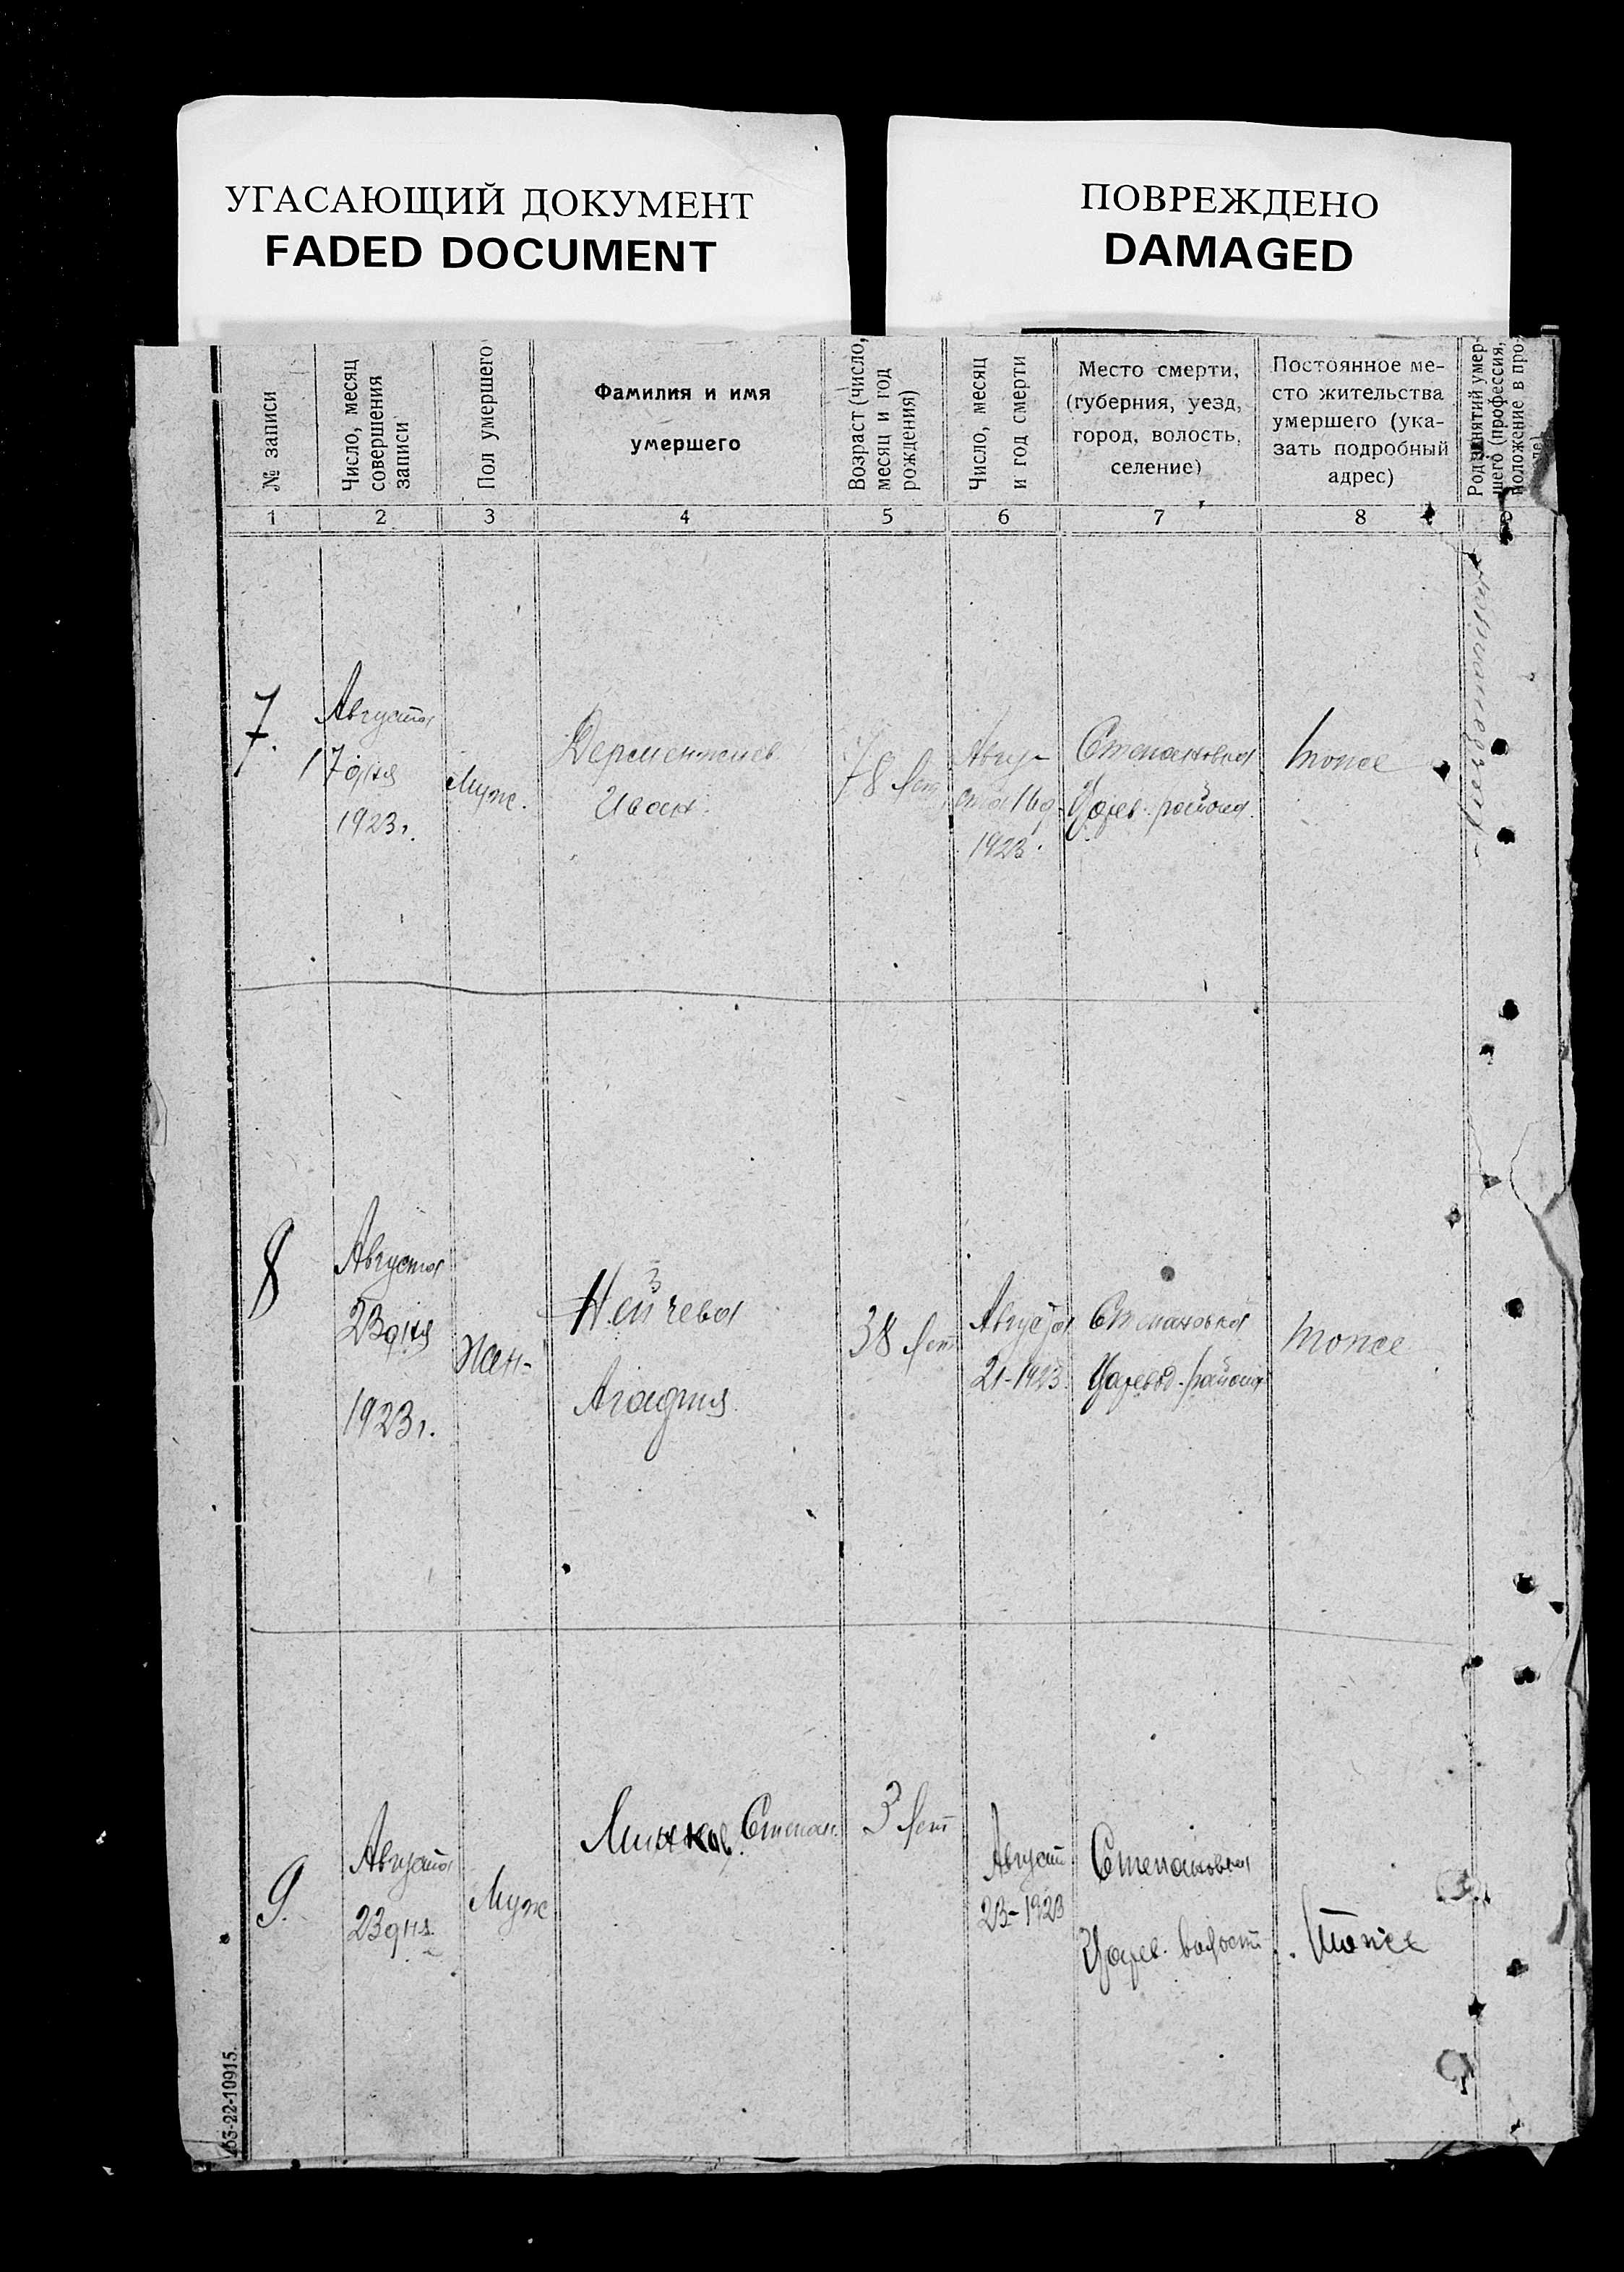 УГАСАЮЩИЙ ДОКУМЕНТ
FADED DOCUMENT
ПОВРЕЖДЕНО
DAMAGED
№ записи
Число, месяц
совершения
записи
Пол умершего
Фамилия и имя
умершего
Возраст (число,
месяц и год
рождения)
Число, месяц
и год смерти
Место смерти,
(губерния, уезд,
город, волость,
селение)
Постоянное ме-
сто жительства
умершего (ука-
зать подробный
адрес)
Род занятий умер-
шего (профессия,
положение в про-
1
2
3
4
5
6
7
8
7.
Августа
17 дня
1923г.
Муж.
Дерментлиев
Иван.
78 лет
Авгу-
ста 16д.
1923.
Степановка
Царев. района.
тоже
8
Августа
23 дня
1923г.
Жен-
Нейчева
Агафия.
38 лет
Августа
21-1923.
Степановка
Царевод. района
тоже
9.
Августа
23 дня.
Муж
Минков Степан.
3 лет
Август.
23-1923
Степановка
Царев. волост.
тоже
63-22-10915.